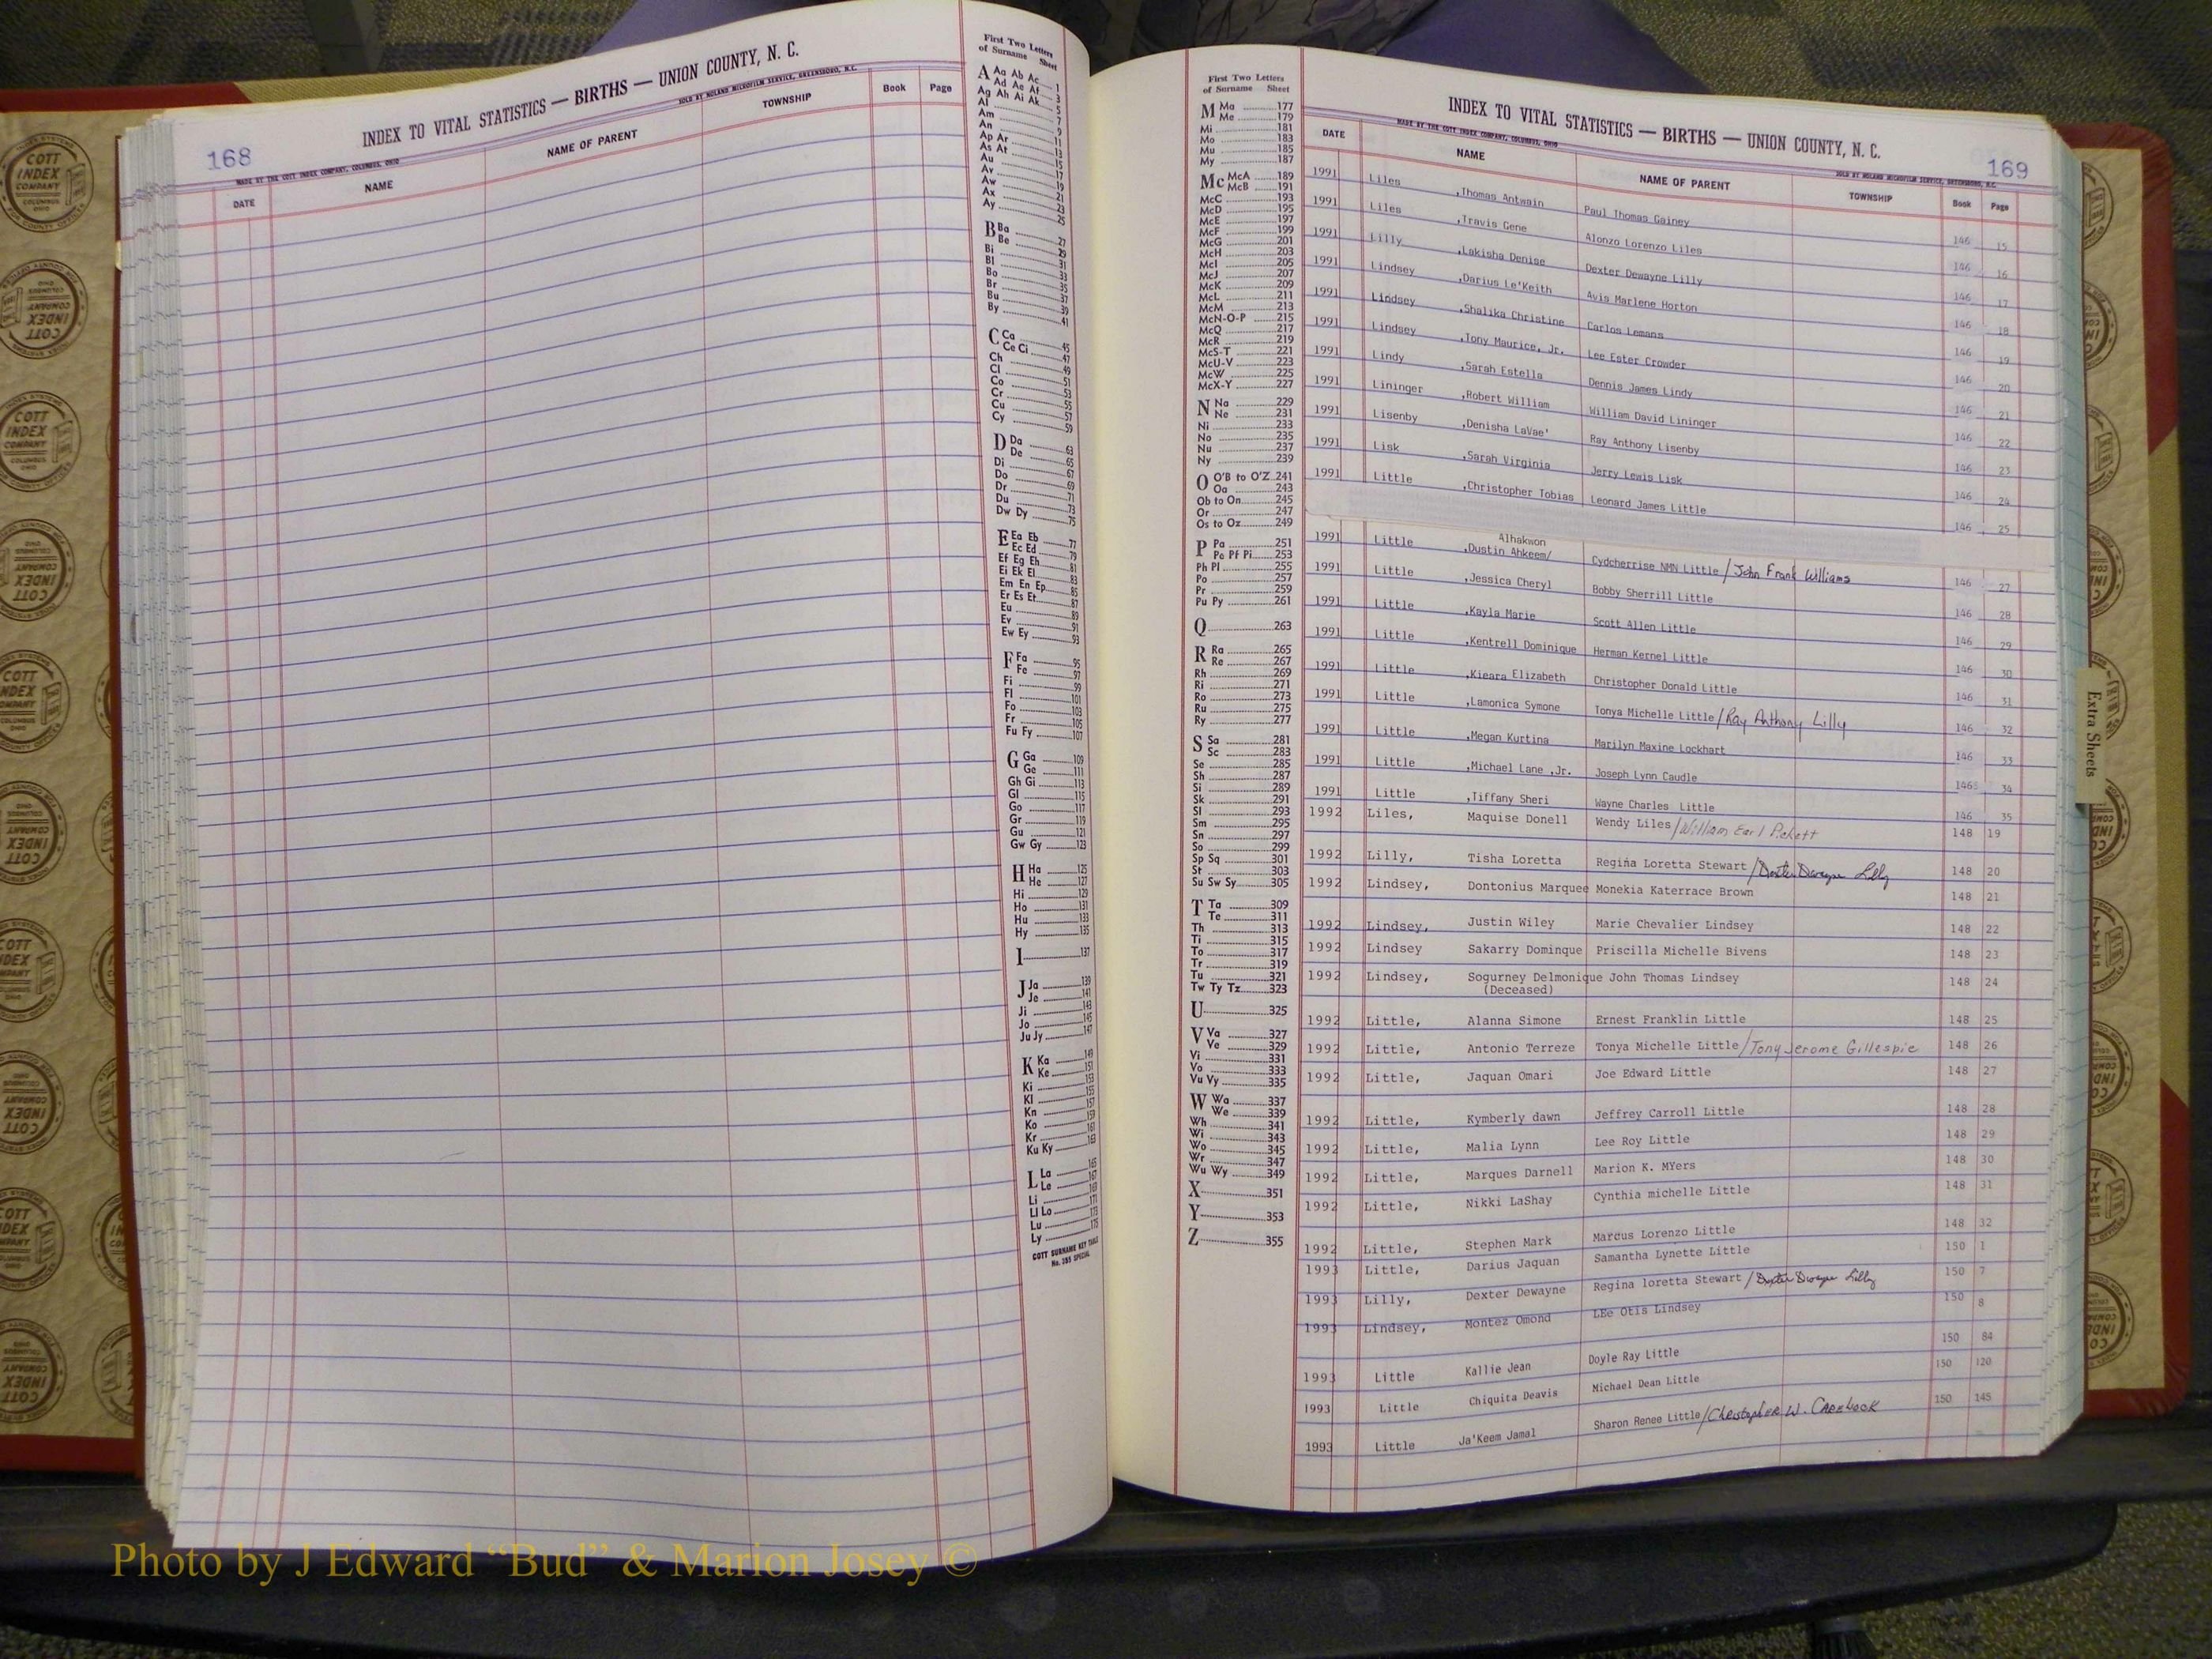 168
INDEX TO VITAL STATISTICS — BIRTHS — UNION COUNTY, N. C.
MADE BY THE COTT INDEX COMPANY, COLUMBUS, OHIO
SOLD BY NOLAND MICROFILM SERVICE, GREENSBORO, N.C.
DATE NAME NAME OF PARENT TOWNSHIP Book Page
First Two Letters
of Surname Sheet
A Aa Ab Ac 1
Ad Ae Af 3
Ag Ah Ai Ak 5
Al 7
Am 9
An 11
Ap Ar 13
As At 15
Au 17
Av 19
Aw 21
Ax 23
Ay 25
B Ba 27
Be 29
Bi 31
Bl 33
Bo 35
Br 37
Bu 39
By 41
C Ca 45
Ce Ci 47
Ch 49
Cl 51
Co 53
Cr 55
Cu 57
Cy 59
D Da 63
De 65
Di 67
Do 69
Dr 71
Du 73
Dw Dy 75
E Ea Eb 77
Ec Ed 79
Ef Eg Eh 81
Ei Ek El 83
Em En Ep 85
Er Es Et 87
Eu 89
Ev 91
Ew Ey 93
F Fa 95
Fe 97
Fi 99
Fl 101
Fo 103
Fr 105
Fu Fy 107
G Ga 109
Ge 111
Gh Gi 113
Gl 115
Go 117
Gr 119
Gu 121
Gw Gy 123
H Ha 125
He 127
Hi 129
Ho 131
Hu 133
Hy 135
I 137
J Ja 139
Je 141
Ji 143
Jo 145
Ju Jy 147
K Ka 149
Ke 151
Ki 153
Kl 155
Kn 157
Ko 159
Kr 161
Ku Ky 163
L La 165
Le 167
Li 169
Ll Lo 171
Lu 173
Ly 175
COTT SURNAME KEY TABLE
No. 355 SPECIAL
First Two Letters
of Surname Sheet
M Ma 177
Me 179
Mi 181
Mo 183
Mu 185
My 187
Mc McA 189
McB 191
McC 193
McD 195
McE 197
McF 199
McG 201
McH 203
McI 205
McJ 207
McK 209
McL 211
McM 213
McN-O-P 215
McQ 217
McR 219
McS-T 221
McU-V 223
McW 225
McX-Y 227
N Na 229
Ne 231
Ni 233
No 235
Nu 237
Ny 239
O O'B to O'Z 241
Oa 243
Ob to On 245
Or 247
Os to Oz 249
P Pa 251
Pe Pf Pi 253
Ph Pl 255
Po 257
Pr 259
Pu Py 261
Q 263
R Ra 265
Re 267
Rh 269
Ri 271
Ro 273
Ru 275
Ry 277
S Sa 281
Sc 283
Se 285
Sh 287
Si 289
Sk 291
Sl 293
Sm 295
Sn 297
So 299
Sp Sq 301
St 303
Su Sw Sy 305
T Ta 309
Te 311
Th 313
Ti 315
To 317
Tr 319
Tu 321
Tw Ty Tz 323
U 325
V Va 327
Ve 329
Vi 331
Vo 333
Vu Vy 335
W Wa 337
We 339
Wh 341
Wi 343
Wo 345
Wr 347
Wu Wy 349
X 351
Y 353
Z 355
INDEX TO VITAL STATISTICS — BIRTHS — UNION COUNTY, N. C.
169
MADE BY THE COTT INDEX COMPANY, COLUMBUS, OHIO
SOLD BY NOLAND MICROFILM SERVICE, GREENSBORO, N.C.
DATE NAME NAME OF PARENT TOWNSHIP Book Page
1991 Liles ,Thomas Antwain Paul Thomas Gainey 146 15
1991 Liles ,Travis Gene Alonzo Lorenzo Liles 146 16
1991 Lilly ,Lakisha Denise Dexter Dewayne Lilly 146 17
1991 Lindsey ,Darius Le'Keith Avis Marlene Horton 146 18
1991 Lindsey ,Shalika Christine Carlos Lemans 146 19
1991 Lindsey ,Tony Maurice, Jr. Lee Ester Crowder 146 20
1991 Lindy ,Sarah Estella Dennis James Lindy 146 21
1991 Lininger ,Robert William William David Lininger 146 22
1991 Lisenby ,Denisha LaVae' Ray Anthony Lisenby 146 23
1991 Lisk ,Sarah Virginia Jerry Lewis Lisk 146 24
1991 Little ,Christopher Tobias Leonard James Little 146 25
Alhakwon
1991 Little ,Dustin Ahkeem/ Cydcherrise NMN Little / John Frank Williams 146 27
1991 Little ,Jessica Cheryl Bobby Sherrill Little 146 28
1991 Little ,Kayla Marie Scott Allen Little 146 29
1991 Little ,Kentrell Dominique Herman Kernel Little 146 30
1991 Little ,Kieara Elizabeth Christopher Donald Little 146 31
1991 Little ,Lamonica Symone Tonya Michelle Little / Ray Anthony Lilly 146 32
1991 Little ,Megan Kurtina Marilyn Maxine Lockhart 146 33
1991 Little ,Michael Lane ,Jr. Joseph Lynn Caudle 146 34
1991 Little ,Tiffany Sheri Wayne Charles Little 146 35
1992 Liles, Maquise Donell Wendy Liles / William Earl Pickett 148 19
1992 Lilly, Tisha Loretta Regina Loretta Stewart / Dexter Dwayne Lilly 148 20
1992 Lindsey, Dontonius Marquee Monekia Katerrace Brown 148 21
1992 Lindsey, Justin Wiley Marie Chevalier Lindsey 148 22
1992 Lindsey Sakarry Dominque Priscilla Michelle Bivens 148 23
1992 Lindsey, Sogurney Delmonique John Thomas Lindsey 148 24
(Deceased)
1992 Little, Alanna Simone Ernest Franklin Little 148 25
1992 Little, Antonio Terreze Tonya Michelle Little / Tony Jerome Gillespie 148 26
1992 Little, Jaquan Omari Joe Edward Little 148 27
1992 Little, Kymberly dawn Jeffrey Carroll Little 148 28
1992 Little, Malia Lynn Lee Roy Little 148 29
1992 Little, Marques Darnell Marion K. MYers 148 30
1992 Little, Nikki LaShay Cynthia michelle Little 148 31
1992 Little, Stephen Mark Marcus Lorenzo Little 148 32
1993 Little, Darius Jaquan Samantha Lynette Little 150 1
1993 Lilly, Dexter Dewayne Regina loretta Stewart / Dexter Dwayne Lilly 150 7
1993 Lindsey, Montez Omond LEe Otis Lindsey 150 8
1993 Little Kallie Jean Doyle Ray Little 150 84
1993 Little Chiquita Deavis Michael Dean Little 150 120
1993 Little Ja'Keem Jamal Sharon Renee Little / Christopher W. 150 145
Extra Sheets
COTT
INDEX
COMPANY
COLUMBUS
OHIO
Photo by J Edward “Bud” & Marion Josey ©